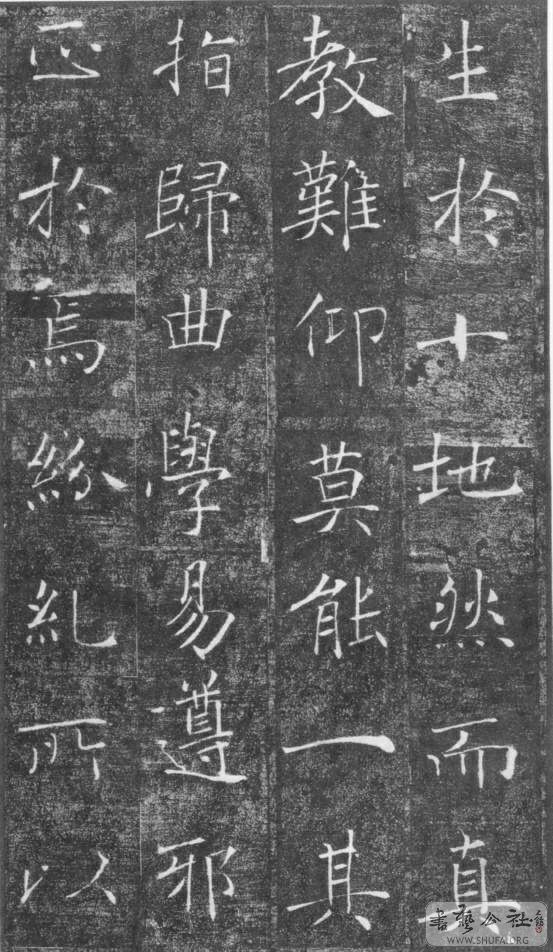 生於十地然而真
教難仰莫能一其
指歸曲學易遵邪
正於焉紛糺所以
書藝公社
WWW.SHUFA.ORG